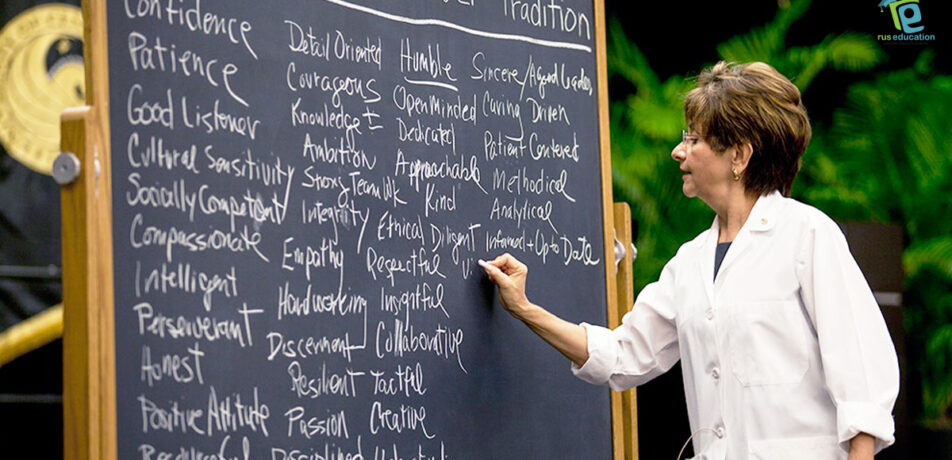 Tradition
Confidence
Patience
Good Listener
Cultural Sensitivity
Socially Competent
Compassionate
Intelligent
Perseverant
Honest
Positive Attitude
Detail Oriented
Courageous
Knowledge
Ambition
Strong Team Wk
Integrity
Empathy
Hardworking
Discernment
Resilient
Passion
Disciplined
Humble
Openminded
Dedicated
Approachable
Kind
Ethical Diligent
Respectful
Insightful
Collaborative
Tactful
Creative
Sincere/A good leader
Caring Driven
Patient Centered
Methodical
Analytical
Informed + Up to Date
rus education